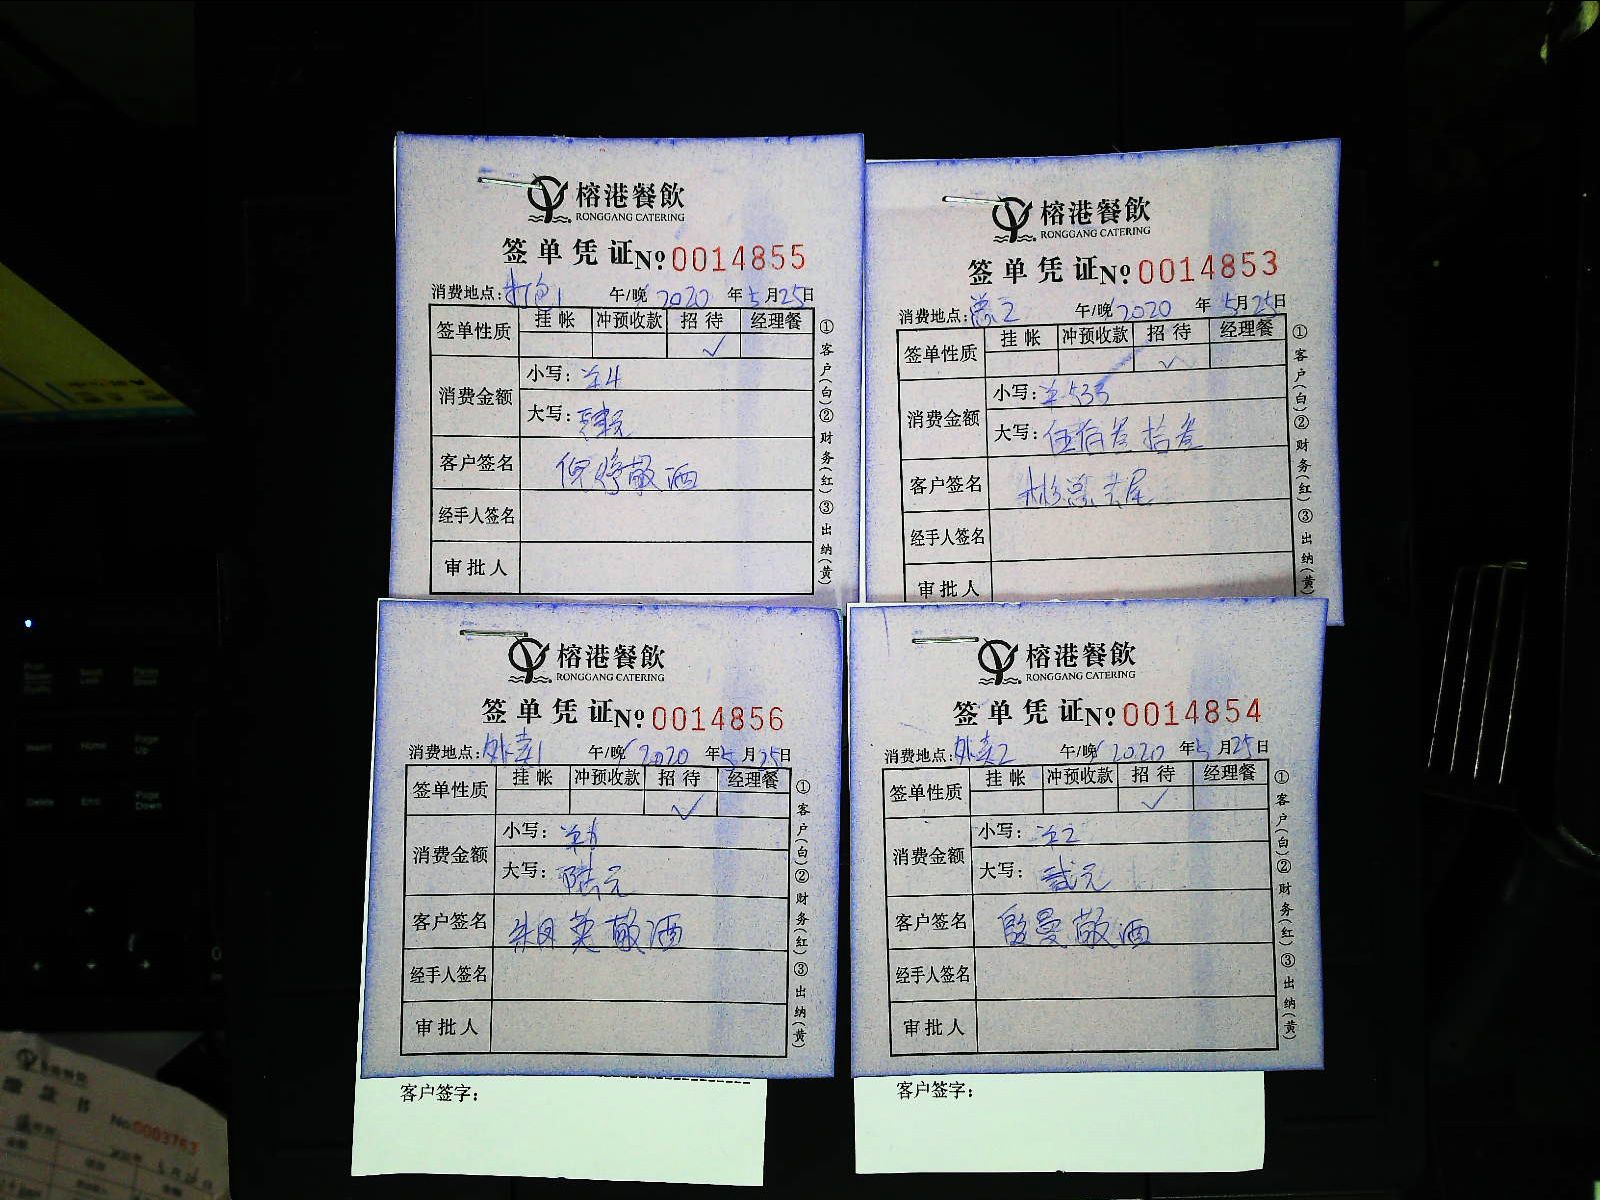 榕港餐飲
RONGGANG CATERING
签单凭证 No 0014855
消费地点: 午/晚 2020 年 5 月 25 日
签单性质 挂帐 冲预收款 招待 经理餐
✓
消费金额 小写: ¥4
大写: 肆元
客户签名 倪婷敬酒
经手人签名
审批人
①客户(白)②财务(红)③出纳(黄)
榕港餐飲
RONGGANG CATERING
签单凭证 No 0014853
消费地点: 午/晚 2020 年 5 月 25 日
签单性质 挂帐 冲预收款 招待 经理餐
✓
消费金额 小写: ¥533
大写: 伍佰叁拾叁
客户签名 彬总
经手人签名
审批人
①客户(白)②财务(红)③出纳(黄)
榕港餐飲
RONGGANG CATERING
签单凭证 No 0014856
消费地点: 外卖1 午/晚 2020 年 5 月 25 日
签单性质 挂帐 冲预收款 招待 经理餐
✓
消费金额 小写: ¥6
大写: 陆元
客户签名 英敬酒
经手人签名
审批人
①客户(白)②财务(红)③出纳(黄)
客户签字:
榕港餐飲
RONGGANG CATERING
签单凭证 No 0014854
消费地点: 外卖2 午/晚 2020 年 5 月 25 日
签单性质 挂帐 冲预收款 招待 经理餐
✓
消费金额 小写: ¥2
大写: 贰元
客户签名 殷曼敬酒
经手人签名
审批人
①客户(白)②财务(红)③出纳(黄)
客户签字:
No 0003763
Insert
Home
Page Up
Delete
End
Page Down